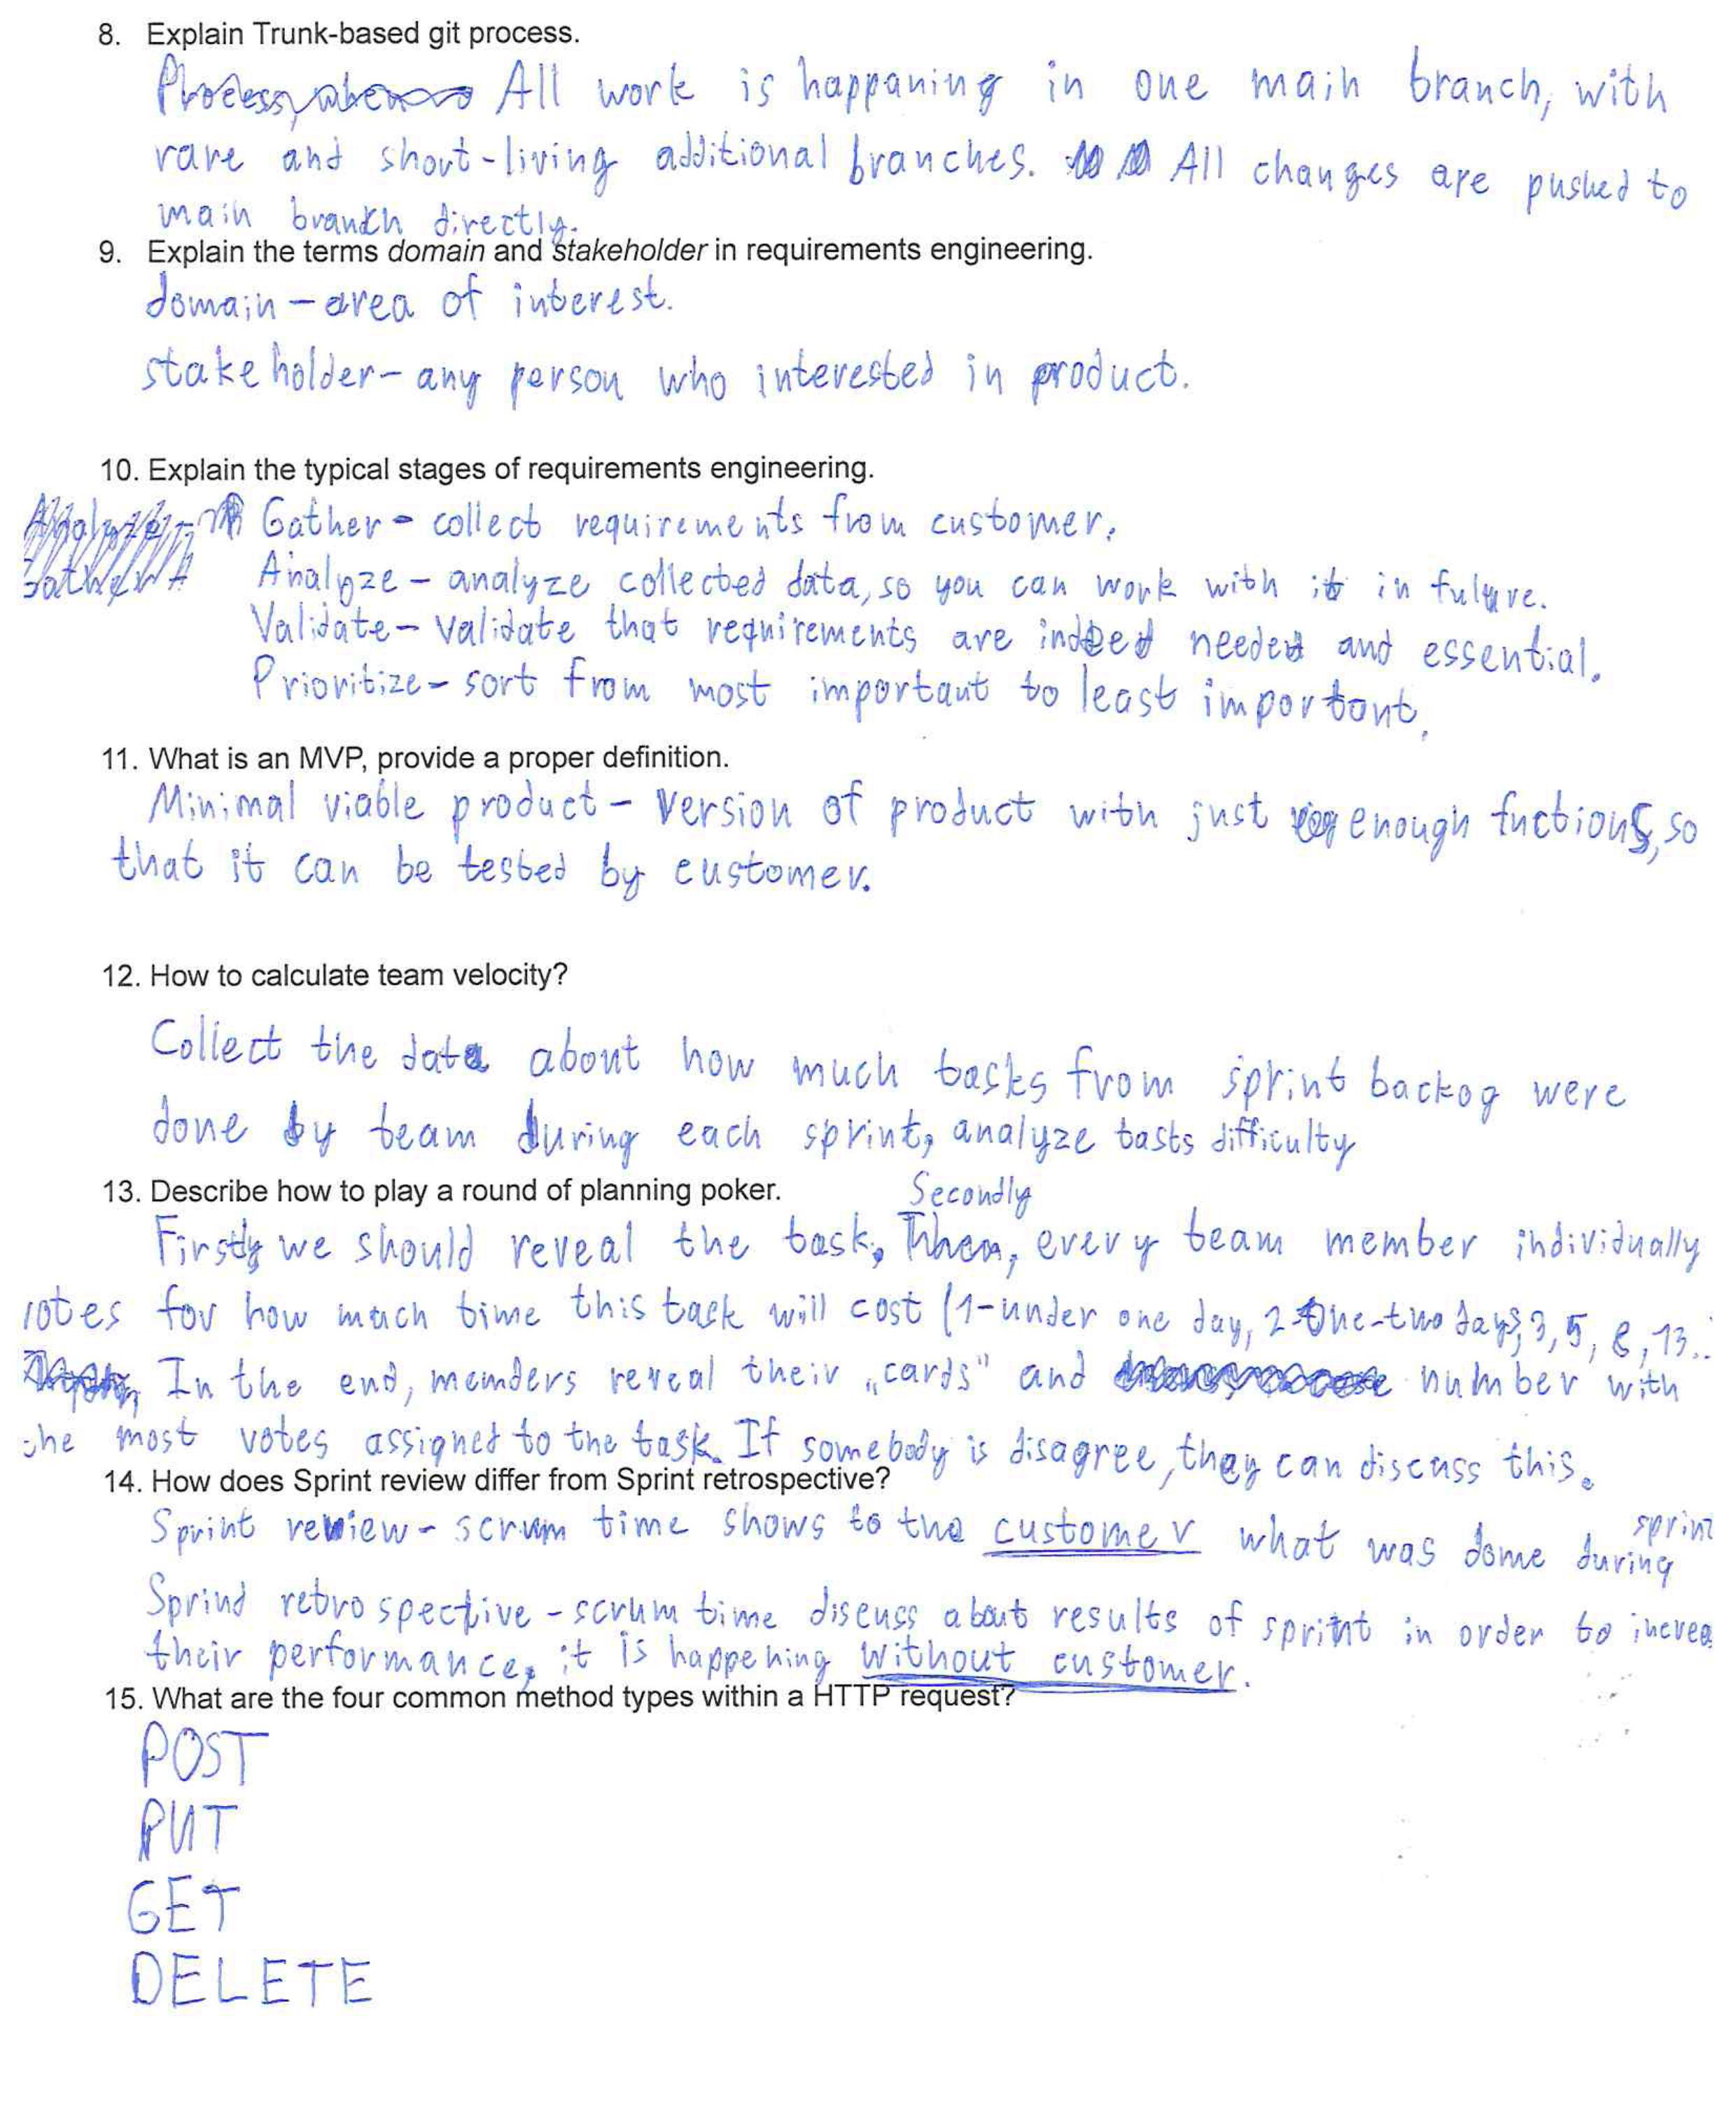 8. Explain Trunk-based git process.
All work is happaning in one main branch, with
rare and short-living additional branches. All changes are pushed to
main branch directly.
9. Explain the terms domain and stakeholder in requirements engineering.
domain - area of interest.
stakeholder - any person who interested in product.
10. Explain the typical stages of requirements engineering.
Gather - collect requirements from customer.
Analyze - analyze collected data, so you can work with it in future.
Validate - validate that requirements are indeed needed and essential.
Prioritize - sort from most important to least important.
11. What is an MVP, provide a proper definition.
Minimal viable product - version of product with just enough fuctions, so
that it can be tested by customer.
12. How to calculate team velocity?
Collect the data about how much tasks from sprint backog were
done by team during each sprint, analyze tasts difficulty
13. Describe how to play a round of planning poker.
Secondly
Firstly we should reveal the task. Then, every team member individually
votes for how much time this task will cost (1-under one day, 2-one-two days, 3, 5, 8, 13..
In the end, memders reveal their „cards" and number with
the most votes assigned to the task. If somebody is disagree, they can discuss this.
14. How does Sprint review differ from Sprint retrospective?
Sprint review - scrum time shows to the customer what was dome during sprint
Sprind retrospective - scrum time discuss about results of sprint in order to increa
their performance, it is happening without customer.
15. What are the four common method types within a HTTP request?
POST
PUT
GET
DELETE